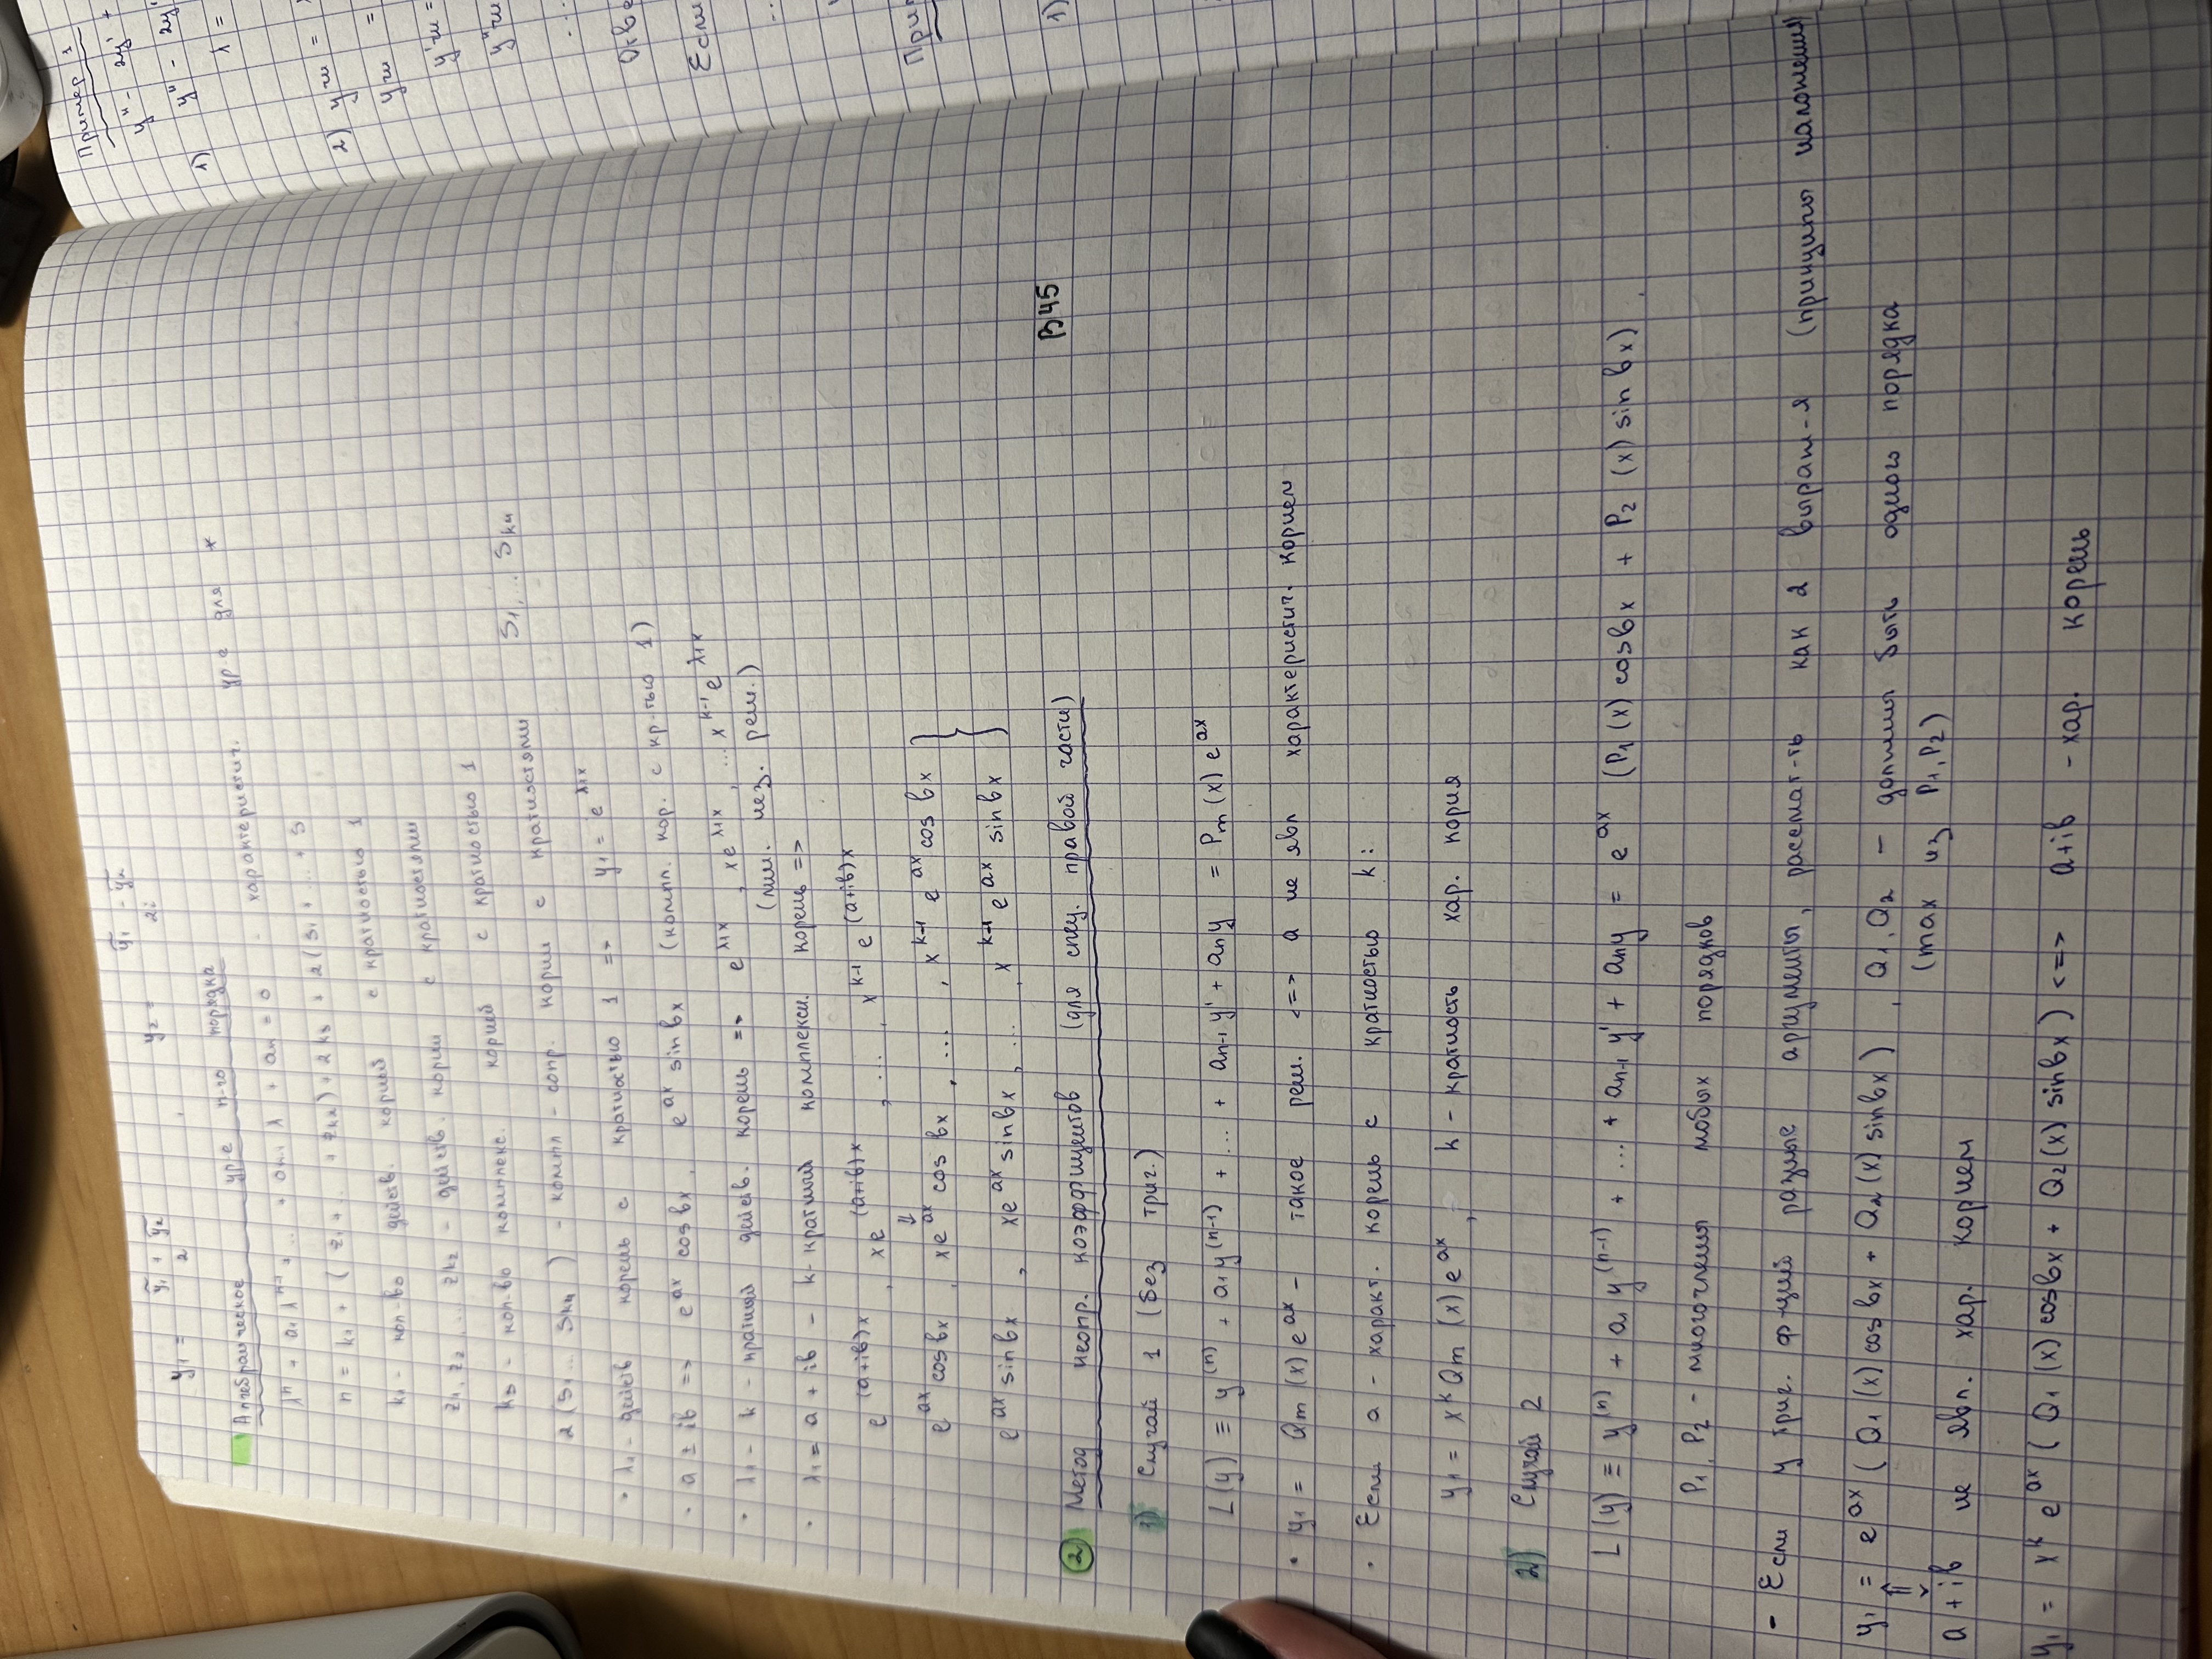 y₁ = (ỹ₁ + ỹ₂)/2 , y₂ = (ỹ₁ - ỹ₂)/2i
Алгебраическое ур-е n-го порядка
λⁿ + a₁λⁿ⁻¹ + ... + aₙ₋₁λ + aₙ = 0 - характеристич. ур-е для *
n = k₁ + (z₁ + ... + z_k₂) + 2k₃ + 2(s₁ + ... + s
k₁ - кол-во действ. корней с кратностью 1
z₁, z₂, ... z_k₂ - действ. корни с кратностями
k₃ - кол-во комплекс. корней с кратностью 1
2(s₁ ... s_k₄) - компл-сопр. корни с кратностями s₁, ... s_k₄
· λ₁ - действ корень с кратностью 1 => y₁ = e^λ₁x
· a ± ib => e^ax cos bx, e^ax sin bx (компл. кор. с кр-тью 1)
· λ₁ - k - кратный действ. корень => e^λ₁x, xe^λ₁x, ... x^k-1 e^λ₁x
(лин. нез. реш.)
· λ₁ = a + ib - k-кратный комплексн. корень =>
e^(a+ib)x, xe^(a+ib)x, ..., x^k-1 e^(a+ib)x
⇓
e^ax cos bx, xe^ax cos bx, ..., x^k-1 e^ax cos bx }
e^ax sin bx, xe^ax sin bx, ..., x^k-1 e^ax sin bx
В45
② Метод неопр. коэффициентов (для спец. правой части)
1) Случай 1 (без триг.)
L(y) ≡ y⁽ⁿ⁾ + a₁y⁽ⁿ⁻¹⁾ + ... + aₙ₋₁y' + aₙy = Pₘ(x)e^ax
· y₁ = Qₘ(x)e^ax - такое реш. <=> a не явл характеристич. корнем
· Если a - характ. корень с кратностью k:
y₁ = x^k Qₘ(x)e^ax, k - кратность хар. корня
2) Случай 2
L(y) ≡ y⁽ⁿ⁾ + a₁y⁽ⁿ⁻¹⁾ + ... + aₙ₋₁y' + aₙy = e^ax (P₁(x)cos bx + P₂(x)sin bx).
P₁, P₂ - многочлены любых порядков
- Если у триг. ф-ций разные аргументы, рассмат-ть как 2 выраж-я (принципы наложения)
y₁ = e^ax (Q₁(x)cos bx + Q₂(x)sin bx), Q₁, Q₂ - должны быть одного порядка
⇕
(max из P₁, P₂)
a + ib не явл. хар. корнем
y₁ = x^k e^ax (Q₁(x)cos bx + Q₂(x)sin bx) <=> a+ib - хар. корень
Пример 1
y'' - 2y' +
1) y'' - 2y'
λ =
2) yчн =
yчн =
y'чн =
y''чн
...
Отве
Если
...
При
1)